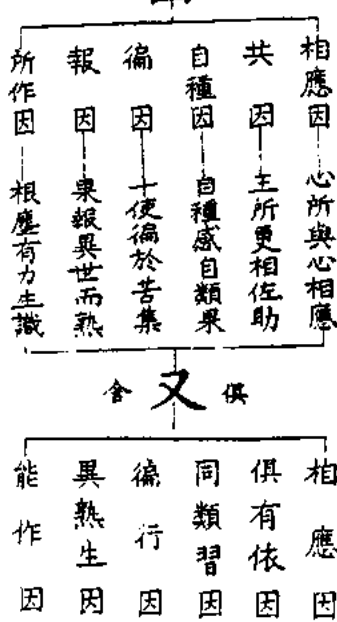 相應因 心所與心相應
共因 王所更相佐助
自種因 自種感自類果
徧因 十使徧於苦集
報因 果報異世而熟
所作因 根塵有力生識
俱
又
含
相應因
俱有依因
同類習因
徧行因
異熟生因
能作因